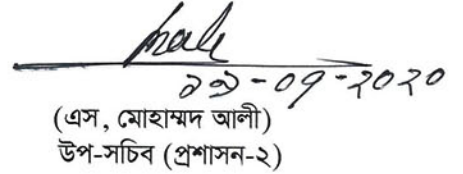 ২৯-০৭-২০২০
(এস, মোহাম্মদ আলী)
উপ-সচিব (প্রশাসন-২)